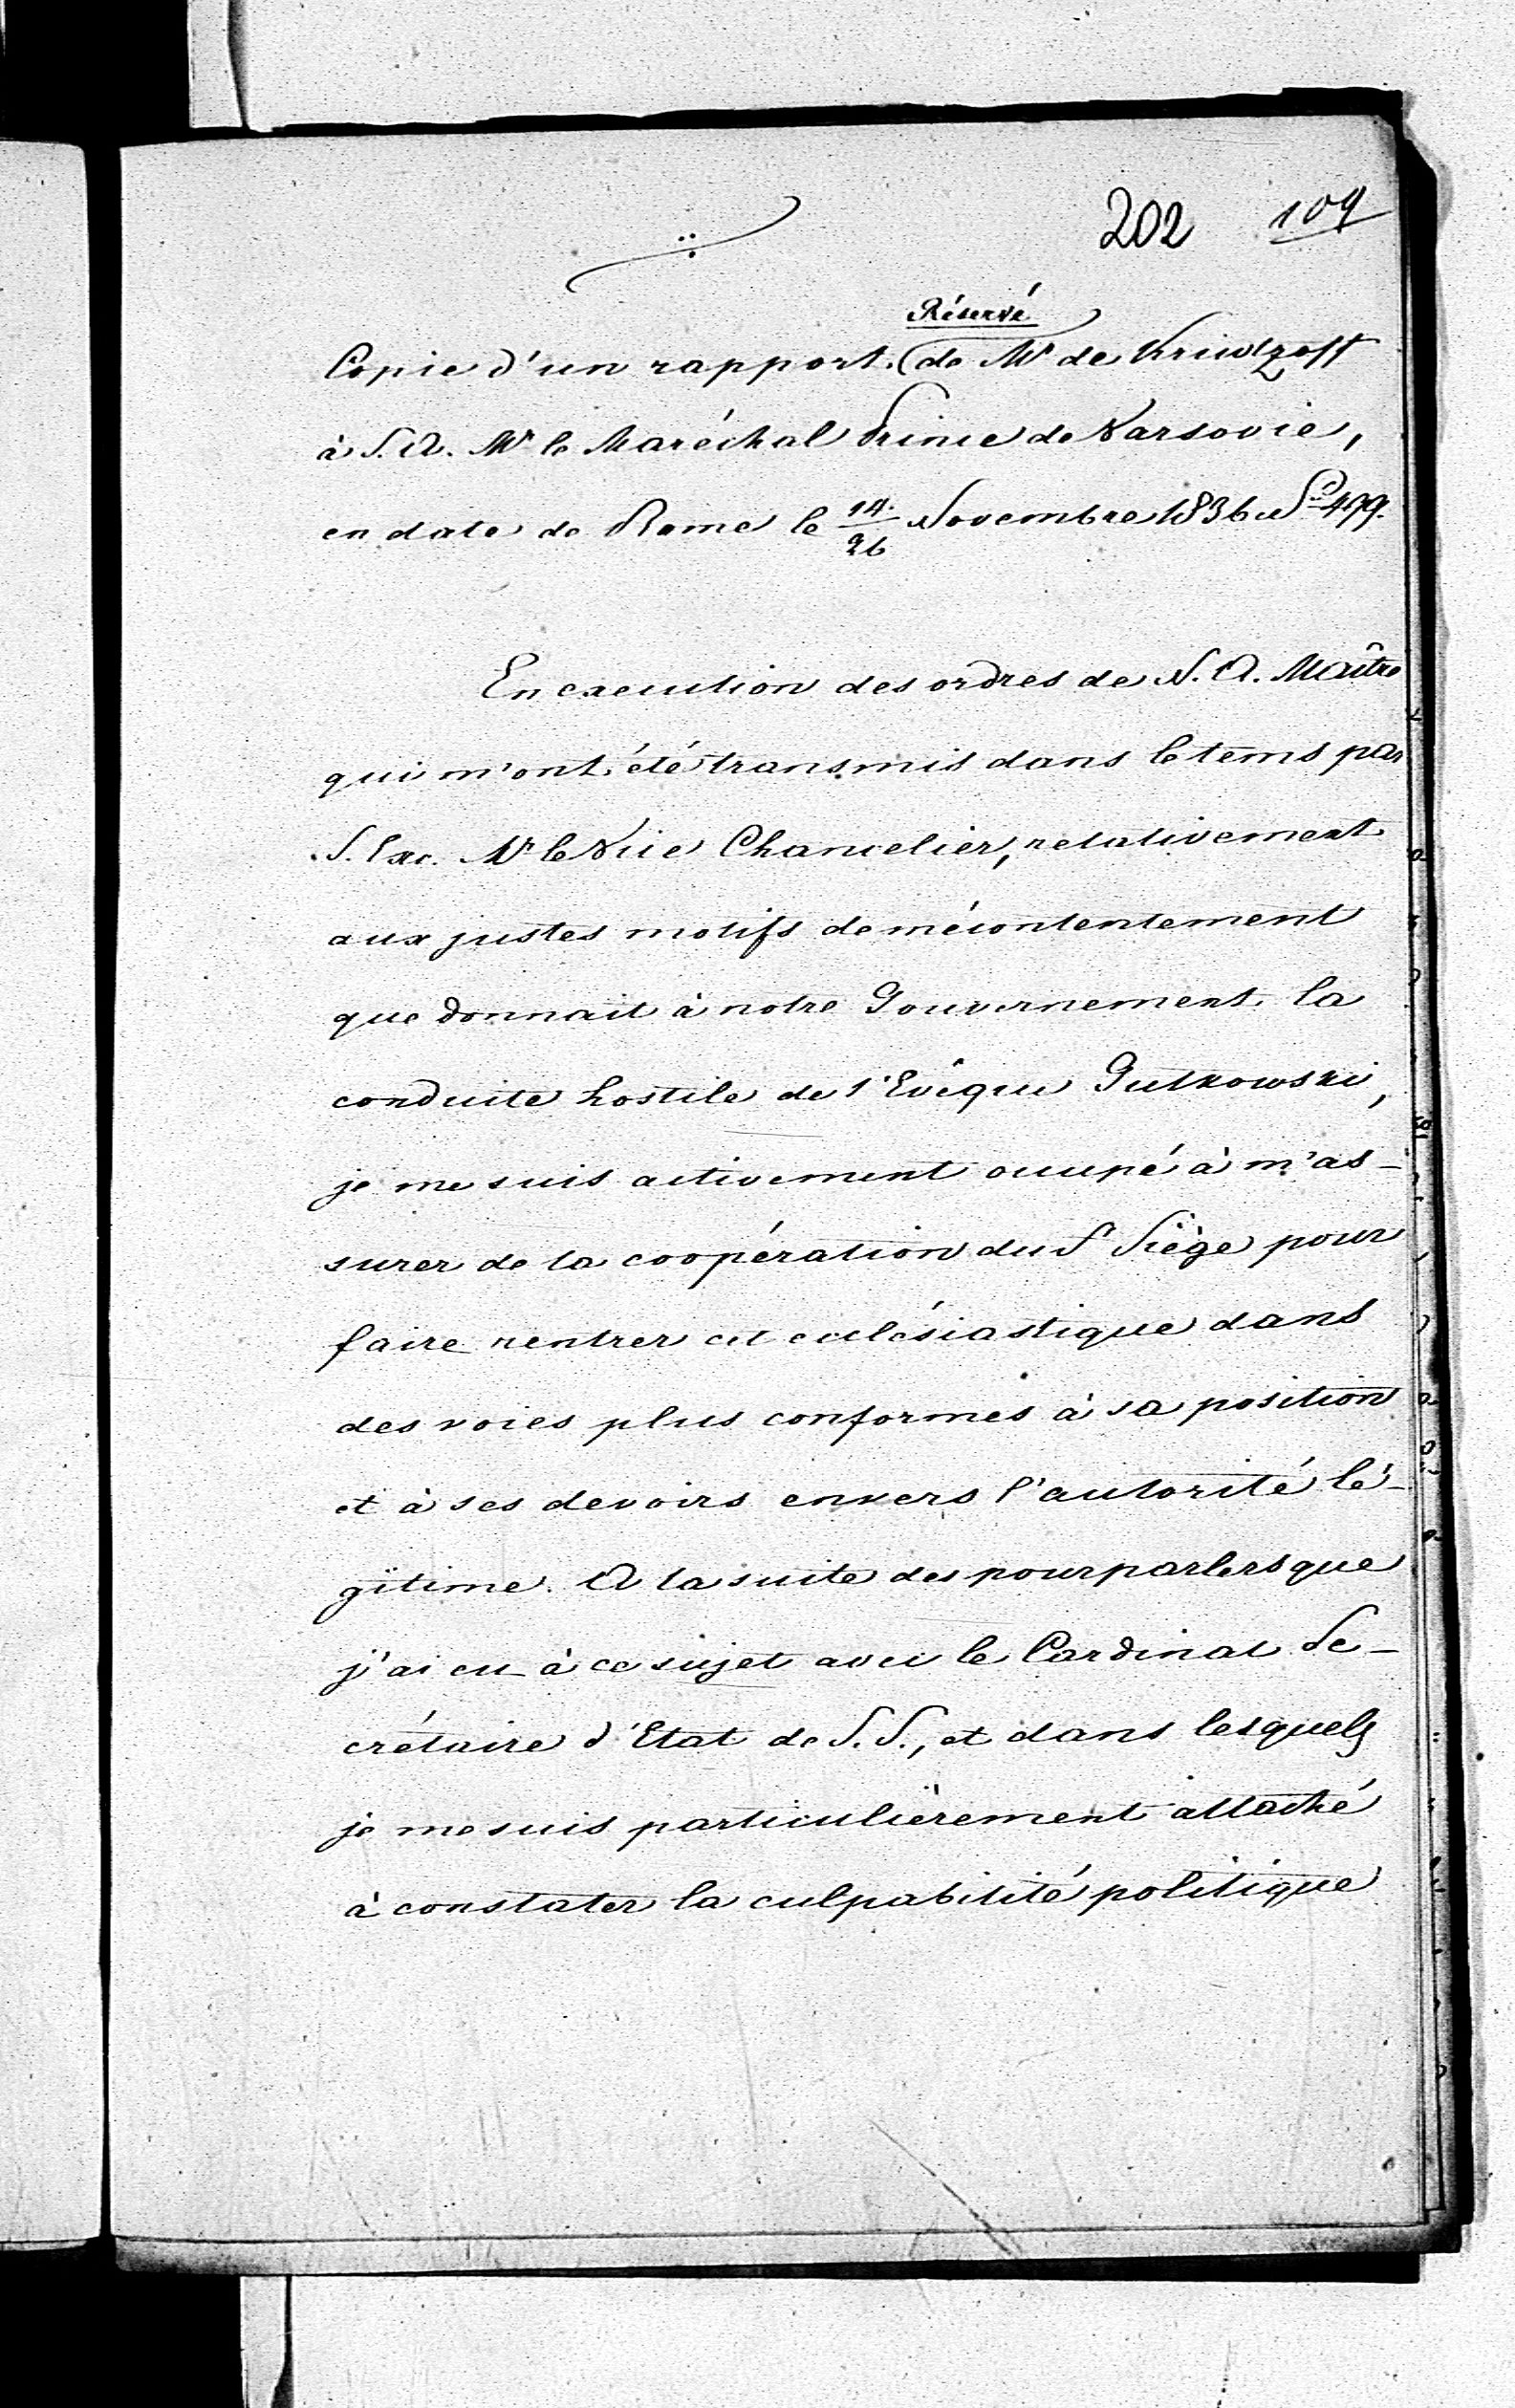 202 109
Réservé
Copie d'un rapport (de Mr de Kriwtzoff
à S. A. Mr le Maréchal Prince de Varsovie,
en date de Rome le 14/26 Novembre 1836
En execution des ordres de N. A. Maître
qui m'ont été transmis dans le tems par
S. Exc. Mr le Vice Chancelier, relativement
aux justes motifs de mécontentement
que donnait à notre Gouvernement la
conduite hostile de l'Evêque Gutkowski,
je me suis activement occupé à m'as-
surer de la coopération du St Siège pour
faire rentrer cet ecclésiastique dans
des voies plus conformes à sa position
et à ses devoirs envers l'autorité lé-
gitime. A la suite des pourparlers que
j'ai eu à ce sujet avec le Cardinal Se-
crétaire d'Etat de S. S., et dans lesquels
je me suis particulièrement attaché
à constater la culpabilité politique